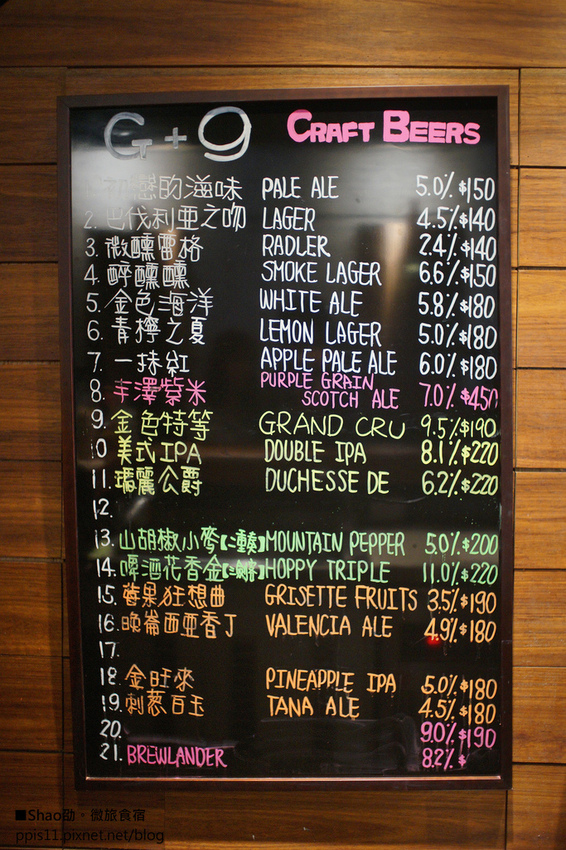 G+9 CRAFT BEERS
1. 初戀的滋味 PALE ALE 5.0% $150
2. 巴伐利亞之吻 LAGER 4.5% $140
3. 微醺雷格 RADLER 2.4% $140
4. 醉醺醺 SMOKE LAGER 6.6% $150
5. 金色海洋 WHITE ALE 5.8% $180
6. 青檸之夏 LEMON LAGER 5.0% $180
7. 一抹紅 APPLE PALE ALE 6.0% $180
8. 丰澤紫米 PURPLE GRAIN SCOTCH ALE 7.0% $450
9. 金色特等 GRAND CRU 9.5% $190
10 美式IPA DOUBLE IPA 8.1% $220
11. 瑪麗公爵 DUCHESSE DE 6.2% $220
12.
13. 山胡椒小麥【二重奏】MOUNTAIN PEPPER 5.0% $200
14. 啤酒花香金 HOPPY TRIPLE 11.0% $220
15. 莓果狂想曲 GRISETTE FRUITS 3.5% $190
16. 晚崙西亞香丁 VALENCIA ALE 4.9% $180
17.
18. 金旺來 PINEAPPLE IPA 5.0% $180
19. 刺蔥百玉 TANA ALE 4.5% $180
20. 9.0% $190
21. BREWLANDER 8.2% $
■Shao劭。微旅食宿
ppis11.pixnet.net/blog